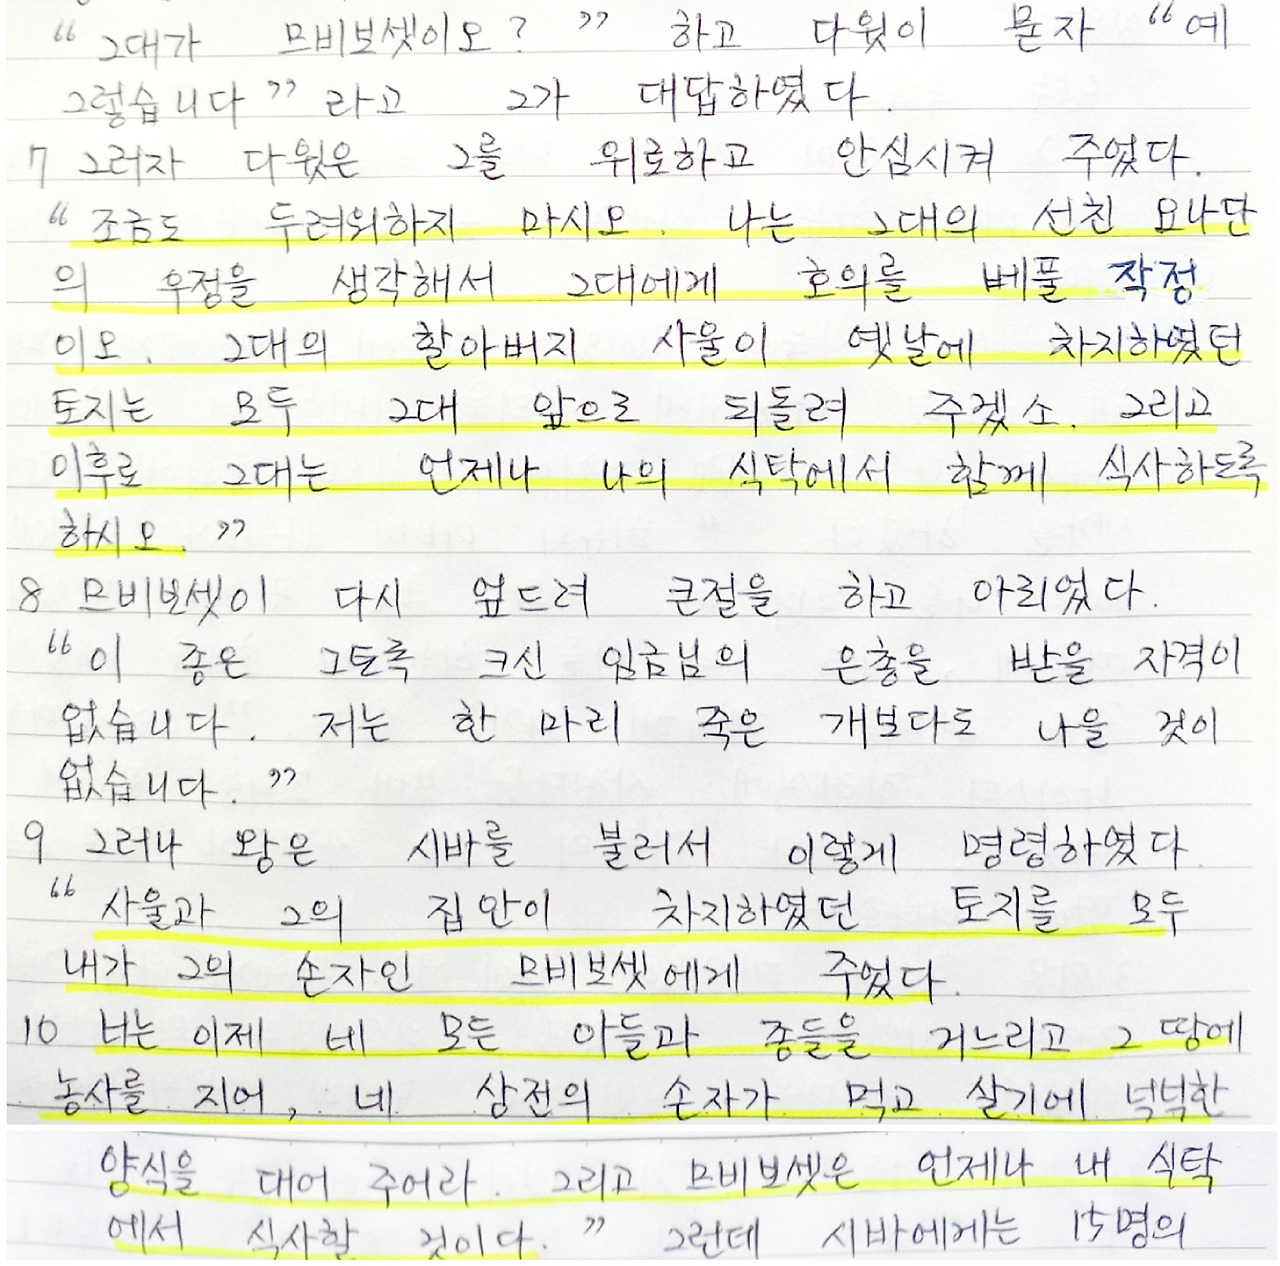 “그대가 므비보셋이오?” 하고 다윗이 묻자 “예
그렇습니다” 라고 그가 대답하였다.
7 그러자 다윗은 그를 위로하고 안심시켜 주었다.
“조금도 두려워하지 마시오. 나는 그대의 선친 요나단
의 우정을 생각해서 그대에게 호의를 베풀 작정
이오. 그대의 할아버지 사울이 옛날에 차지하였던
토지는 모두 그대 앞으로 되돌려 주겠소. 그리고
이후로 그대는 언제나 나의 식탁에서 함께 식사하도록
하시오.”
8 므비보셋이 다시 엎드려 큰절을 하고 아뢰었다.
“이 종은 그토록 크신 임금님의 은총을 받을 자격이
없습니다. 저는 한 마리 죽은 개보다도 나을 것이
없습니다.”
9 그러나 왕은 시바를 불러서 이렇게 명령하였다.
“사울과 그의 집안이 차지하였던 토지를 모두
내가 그의 손자인 므비보셋에게 주었다.
10 너는 이제 네 모든 아들과 종들을 거느리고 그 땅에
농사를 지어, 네 상전의 손자가 먹고 살기에 넉넉한
양식을 대어 주어라. 그리고 므비보셋은 언제나 내 식탁
에서 식사할 것이다.” 그런데 시바에게는 15명의